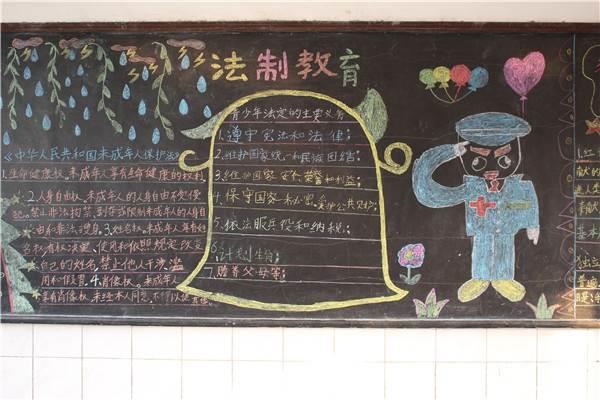 法制教育
《中华人民共和国未成年人保护法》
1.生命健康权,未成年人享有生命健康的权利
2.人身自由权,未成年人的人身自由不受侵
犯,禁止非法拘禁、剥夺或限制未成年人的人身自
由和非法搜身。3.姓名权,未成年人享有姓
名权有权决定、使用和依照规定改变
自己的姓名,禁止他人干涉、滥
用和假冒。4.肖像权,未成年人
享有肖像权,未经本人同意,不得以
青少年法定的主要义务
1.遵守宪法和法律;
2.维护国家统一和民族团结;
3.维护国家安全、荣誉和利益;
4.保守国家秘密、爱护公共财物
5.依法服兵役和纳税;
6.计划生育;
7.赡养父母等;
1.红
献的
基本
独立
普通